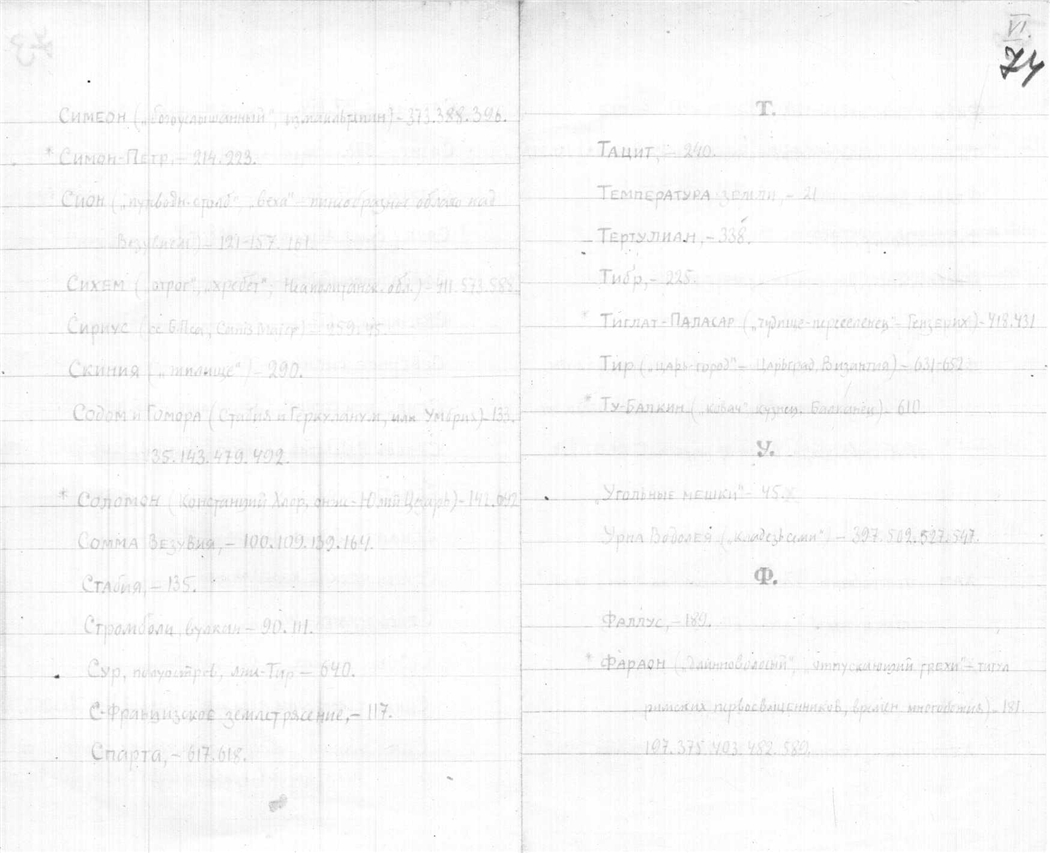 СИМЕОН („богуслышанный", измаильтянин) - 373.388.396.
* СИМОН-ПЕТР. - 214.223.
СИОН ( столб", „веха" - пиниеобразное облако над
Везувием) - 121-157. 161.
СИХЕМ ( „отрог", „хребет", обл.) - 411.573.588.
СИРИУС ( ) - 259.45.
СКИНИЯ ( „жилище") - 290.
СОДОМ и ГОМОРА ( Стабия и Геркуланум, или Умбрия) - 133.
135.143.479.492.
* СОЛОМОН ( Констанций Хлор, он-же - Юлий Цезарь) - 142.
СОММА ВЕЗУВИЯ, - 100.109.139.164.
СТАБИЯ, - 135.
СТРОМБОЛИ, вулкан - 90.111.
СУР, полуостров, или-Тир - 640.
С-ФРАНЦИЗСКОЕ землетрясение, - 117.
СПАРТА, - 617.618.
VI.
74
Т.
ТАЦИТ, - 240.
ТЕМПЕРАТУРА ЗЕМЛИ, - 21
ТЕРТУЛИАН, - 338.
ТИБР, - 225.
* ТИГЛАТ-ПАЛАСАР („чудище-переселенец" - Гензерих) - 418.431
ТИР („царь-город" - Царьград, Византия) - 631-652
* ТУ-БАЛКИН ( „ковач" кузнец. Балканец) - 610.
У.
„УГОЛЬНЫЕ МЕШКИ" - 45.X.
УРНА ВОДОЛЕЯ ( „кладезь семи") - 397.502.527.547.
Ф.
ФАЛЛУС, - 189.
* ФАРАОН ( „отпускающий грехи" - титул
римских первосвященников, времен многобожия). 181.
197.378.403.482.589.